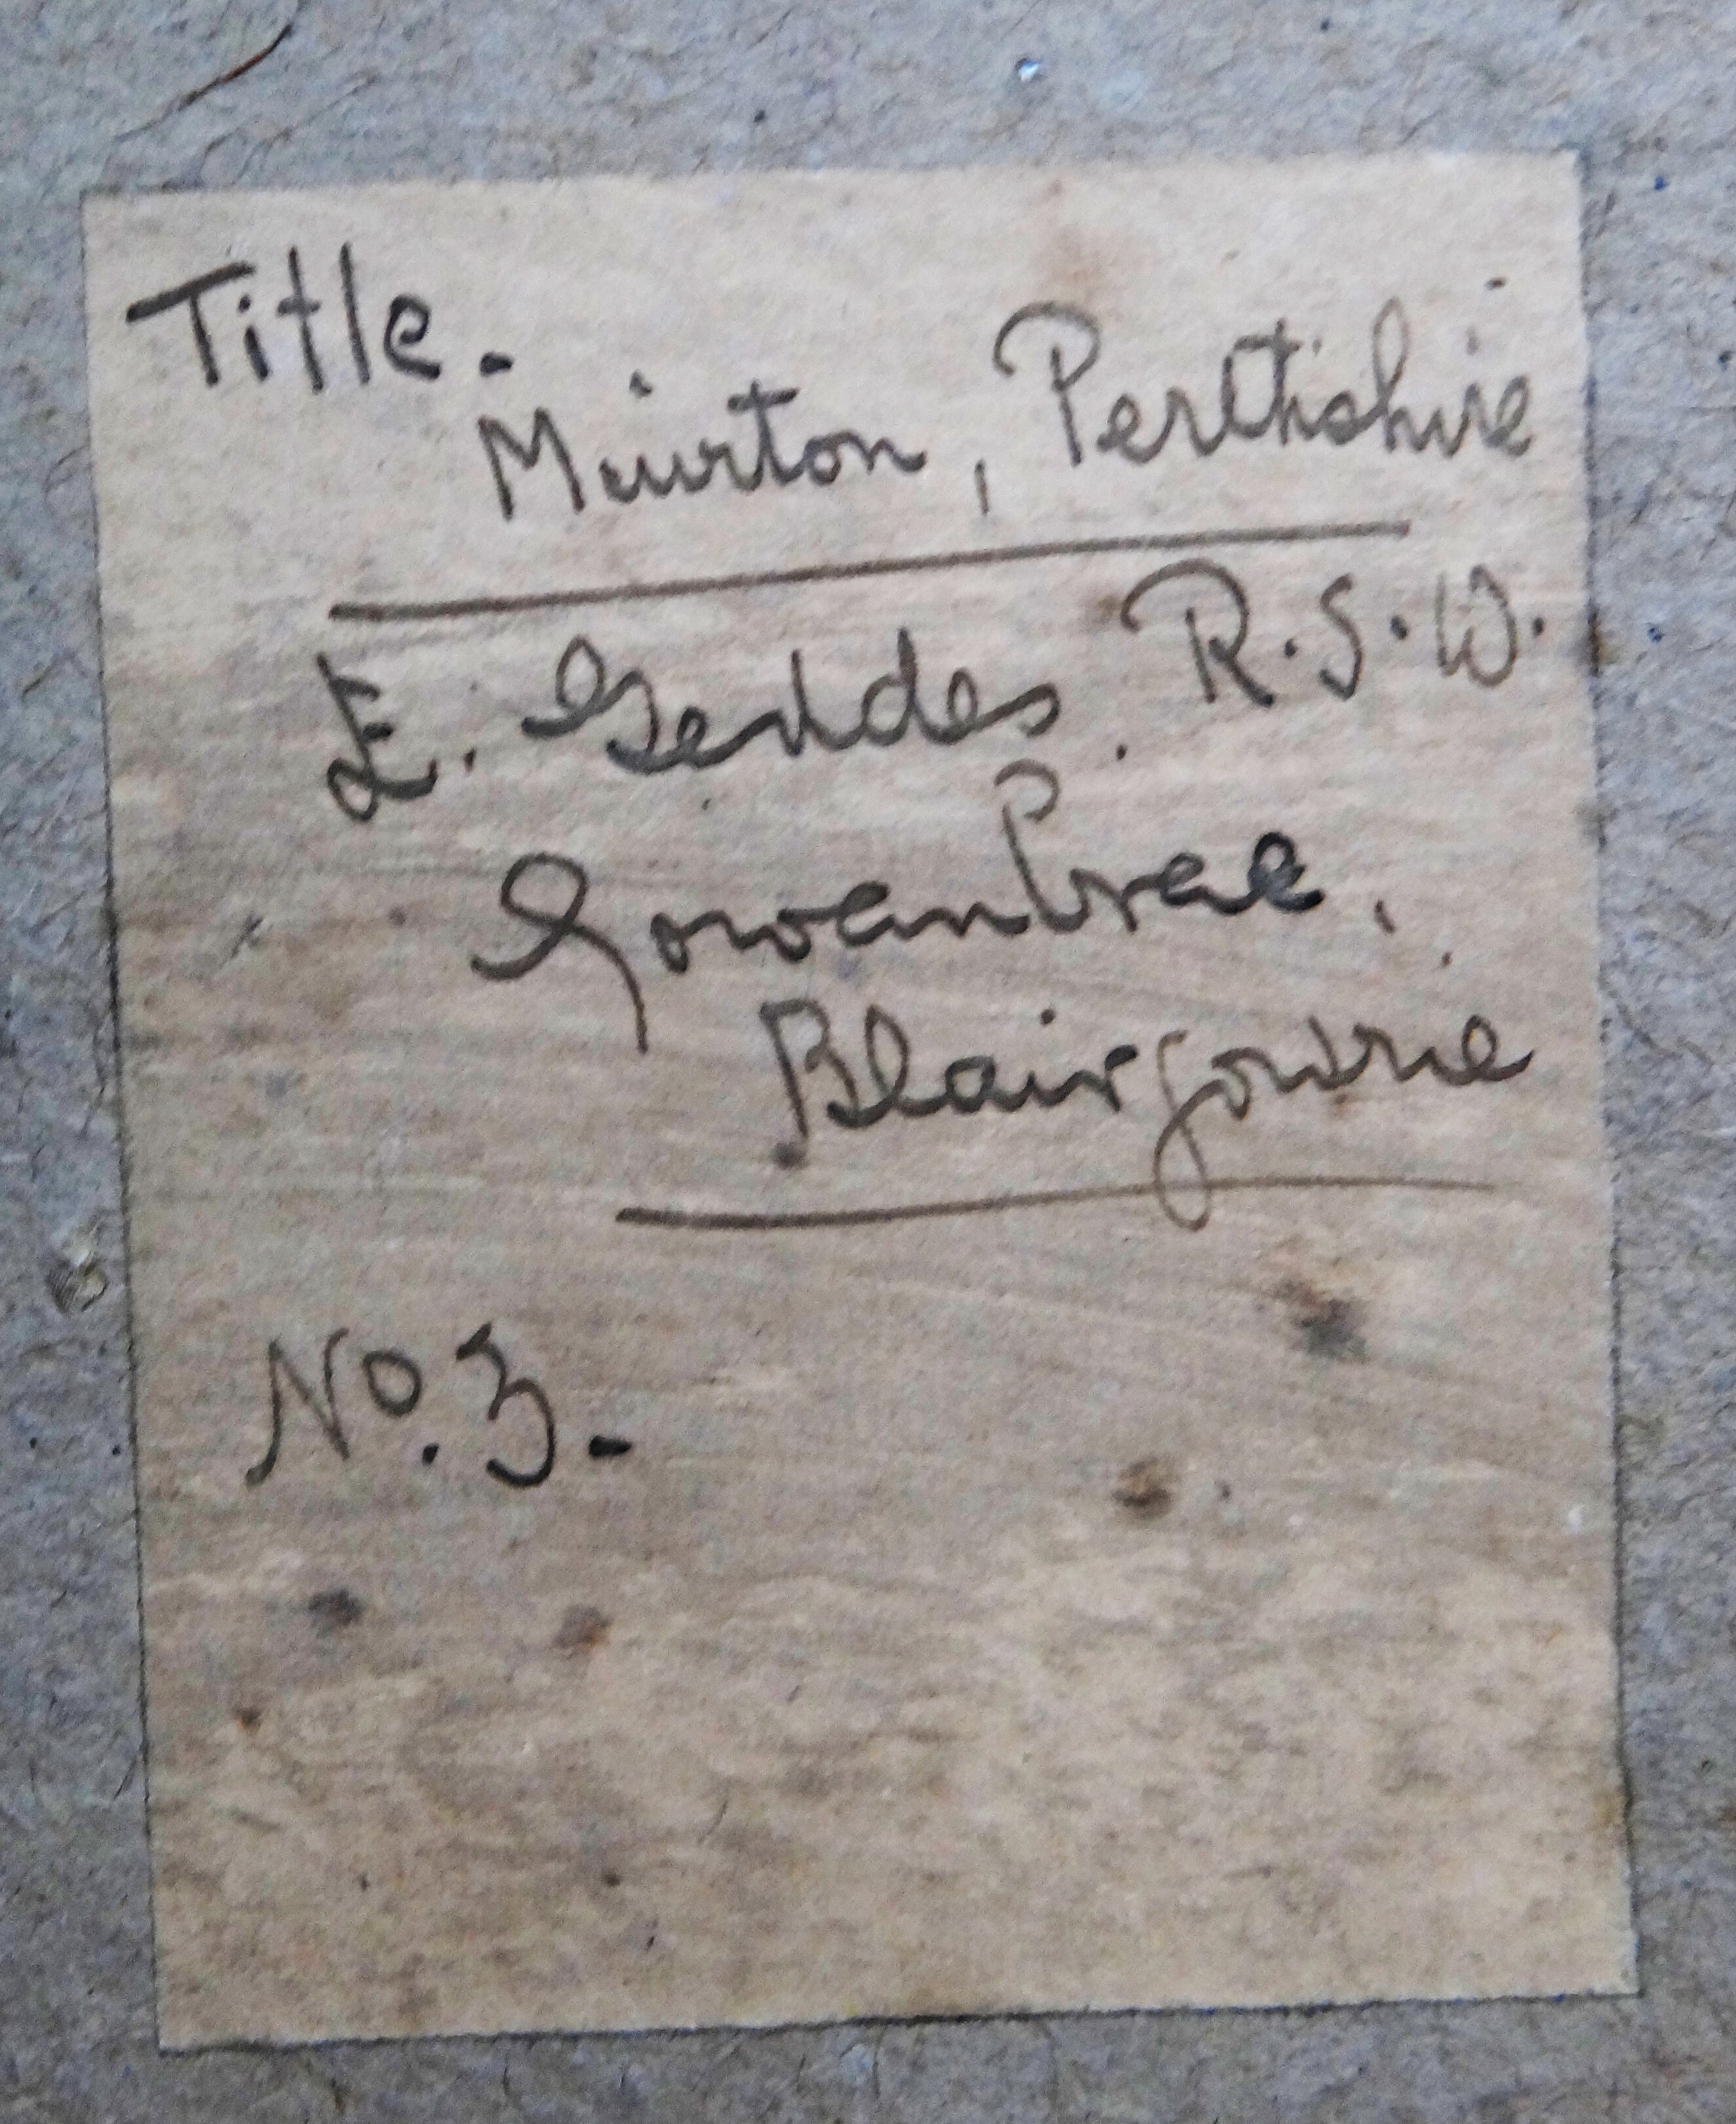 Title.
Muirton, Perthshire
E. Geddes. R.S.W.
Gowanbrae,
Blairgowrie
No. 3.